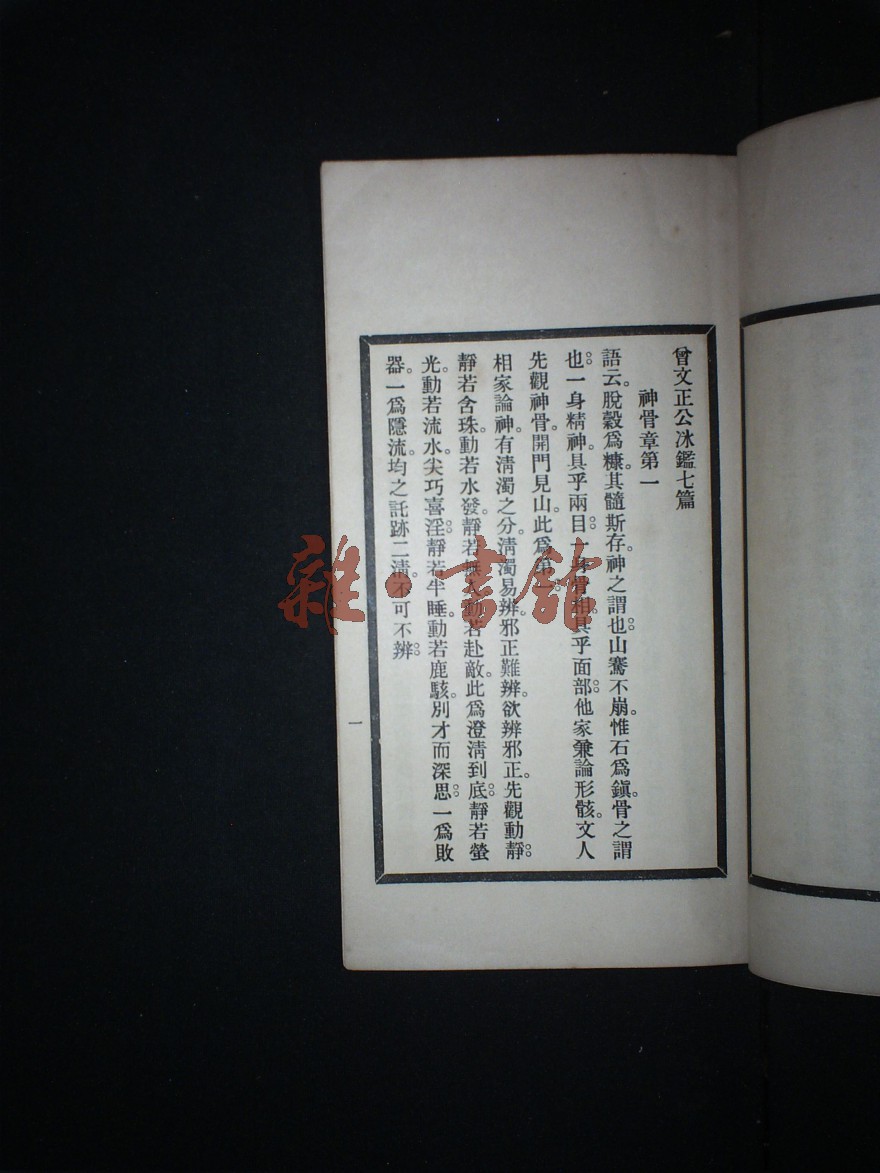 曾文正公冰鑑七篇
神骨章第一
語云。脫穀爲糠。其髓斯存。神之謂也。山騫不崩。惟石爲鎮。骨之謂
也。一身精神。具乎兩目。一身骨相。具乎面部。他家兼論形骸。文人
先觀神骨。開門見山。此爲第一。
相家論神。有淸濁之分。淸濁易辨。邪正難辨。欲辨邪正。先觀動靜。
靜若含珠。動若水發。靜若無人。動若赴敵。此爲澄淸到底。靜若螢
光。動若流水。尖巧喜淫。靜若半睡。動若鹿駭。別才而深思。一爲敗
器。一爲隱流。均之託跡二淸。不可不辨。
一
雜·書館